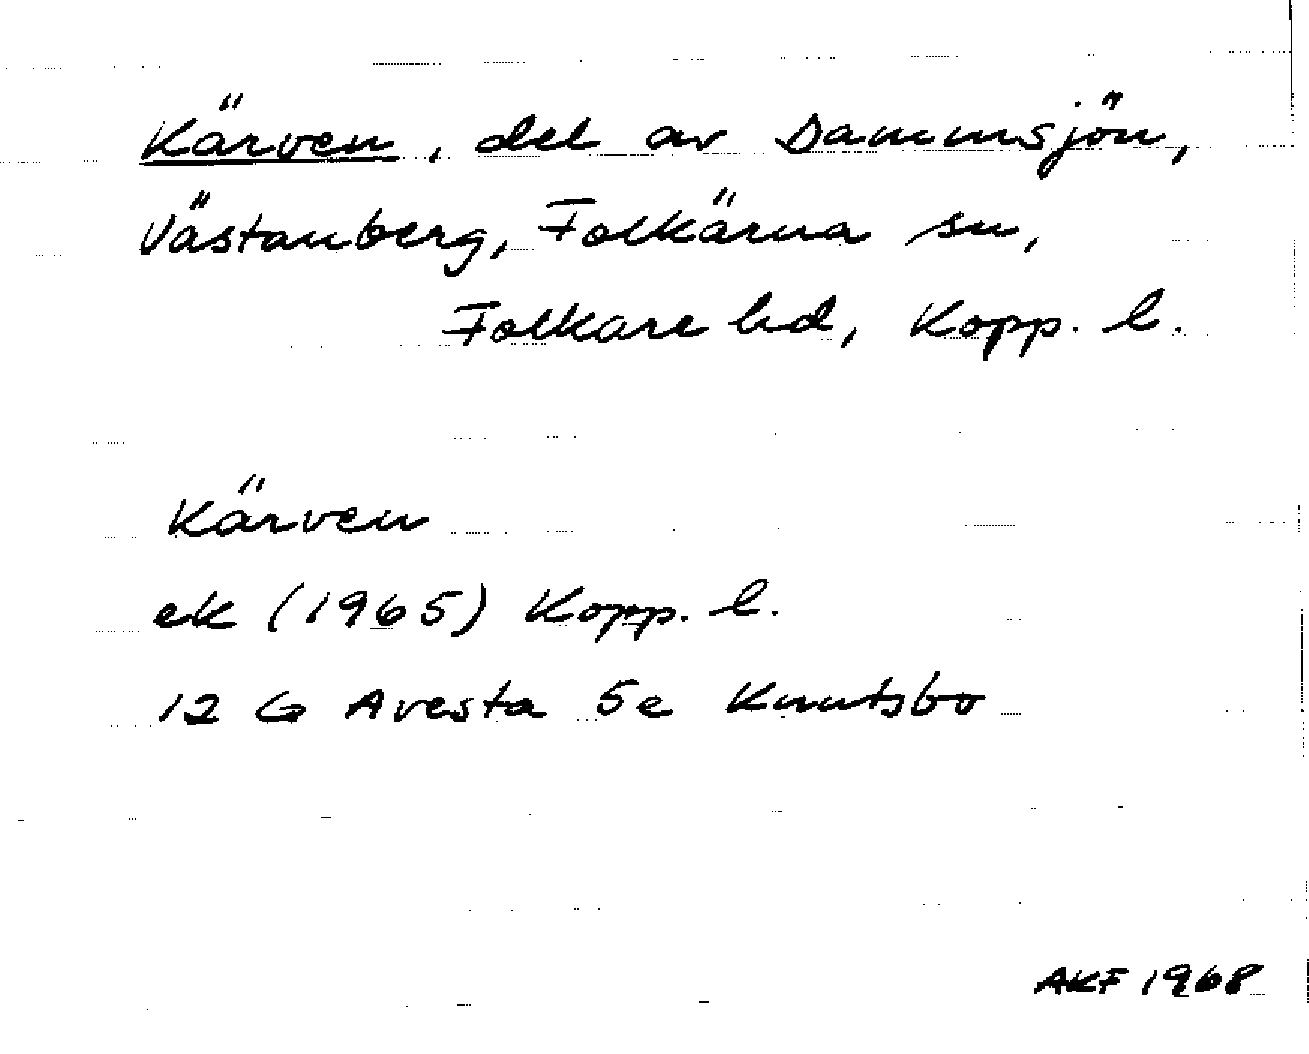 Kärven, del av Dammsjön,
Västanberg, Folkärna sn,
Folkare hd, Kopp. l.
Kärven
ek (1965) Kopp. l.
12 G Avesta 5e Knutsbo
AKF 1968